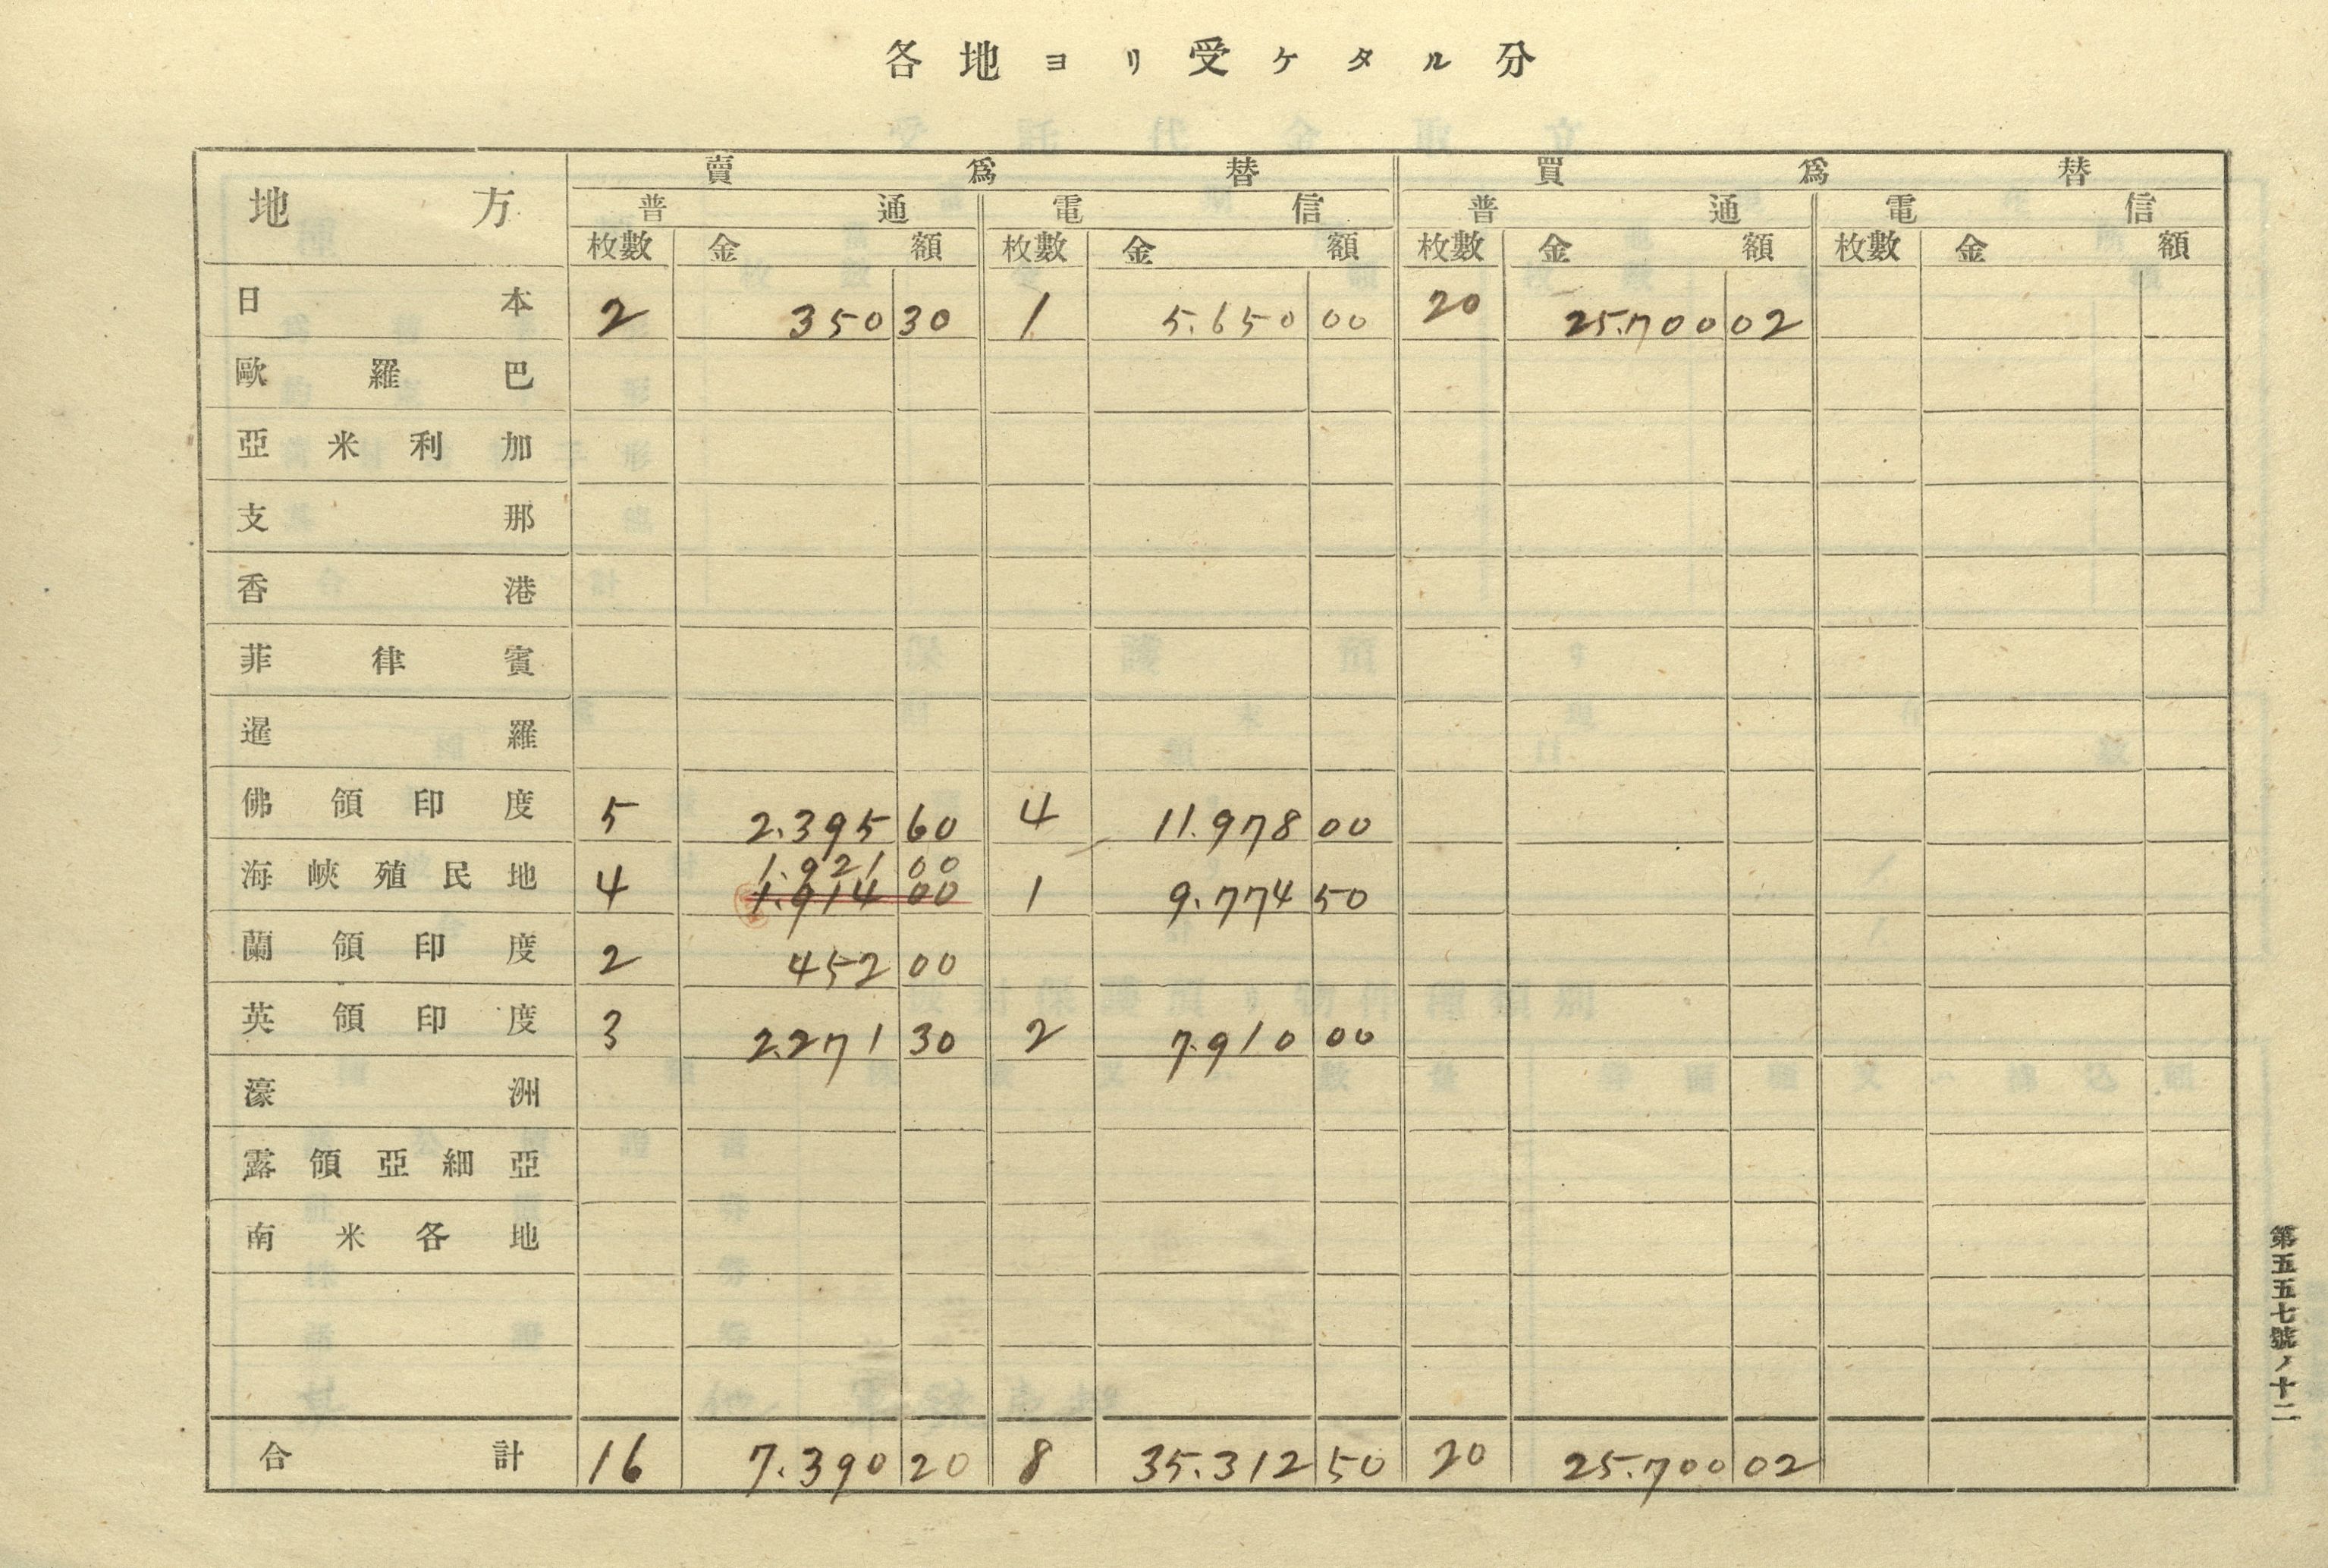 各地ヨリ受ケタル分
地方 賣爲替 買爲替
普通 電信 普通 電信
枚數 金額 枚數 金額 枚數 金額 枚數 金額
日本 2 350 30 1 5.650 00 20 25.700 02
歐羅巴
亞米利加
支那
香港
菲律賓
暹羅
佛領印度 5 2.395 60 4 11.978 00
1.921 00
海峽殖民地 4 1.914 00 1 9.774 50
蘭領印度 2 452 00
英領印度 3 2.271 30 2 7.910 00
濠洲
露領亞細亞
南米各地
合計 16 7.390 20 8 35.312 50 20 25.700 02
第五五七號ノ十二